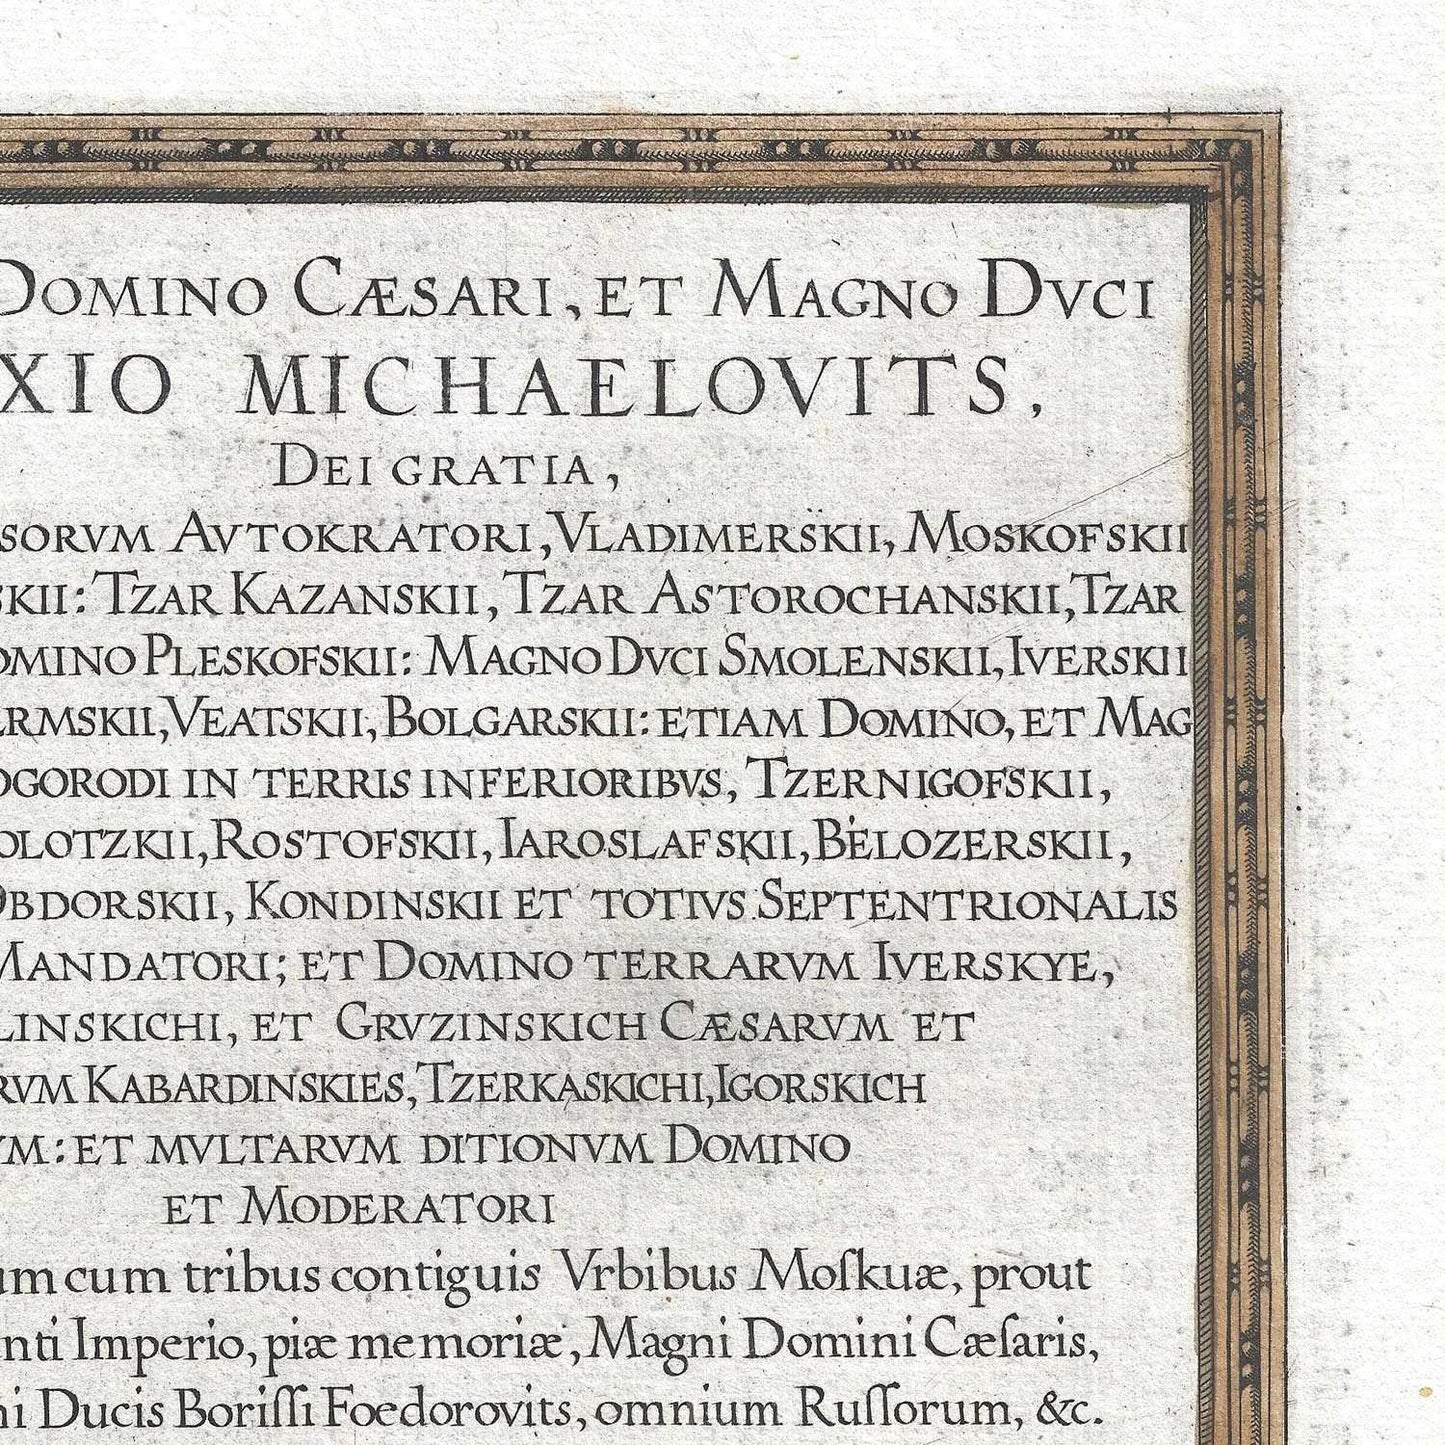 DOMINO CÆSARI, ET MAGNO DVCI
XIO MICHAELOVITS,
DEI GRATIA,
SORVM AVTOKRATORI, VLADIMERSKII, MOSKOFSKII
SKII: TZAR KAZANSKII, TZAR ASTOROCHANSKII, TZAR
OMINO PLESKOFSKII: MAGNO DVCI SMOLENSKII, IVERSKII
ERMSKII, VEATSKII, BOLGARSKII: ETIAM DOMINO, ET MAG
OGORODI IN TERRIS INFERIORIBVS, TZERNIGOFSKII,
OLOTZKII, ROSTOFSKII, IAROSLAFSKII, BĖLOZERSKII,
OBDORSKII, KONDINSKII ET TOTIVS SEPTENTRIONALIS
MANDATORI; ET DOMINO TERRARVM IVERSKYE,
LINSKICHI, ET GRVZINSKICH CÆSARVM ET
RVM KABARDINSKIES, TZERKASKICHI, IGORSKICH
VM: ET MVLTARVM DITIONVM DOMINO
ET MODERATORI
um cum tribus contiguis Vrbibus Moſkuæ, prout
nti Imperio, piæ memoriæ, Magni Domini Cæſaris,
ni Ducis Boriſſi Foedorovits, omnium Ruſſorum, &c.